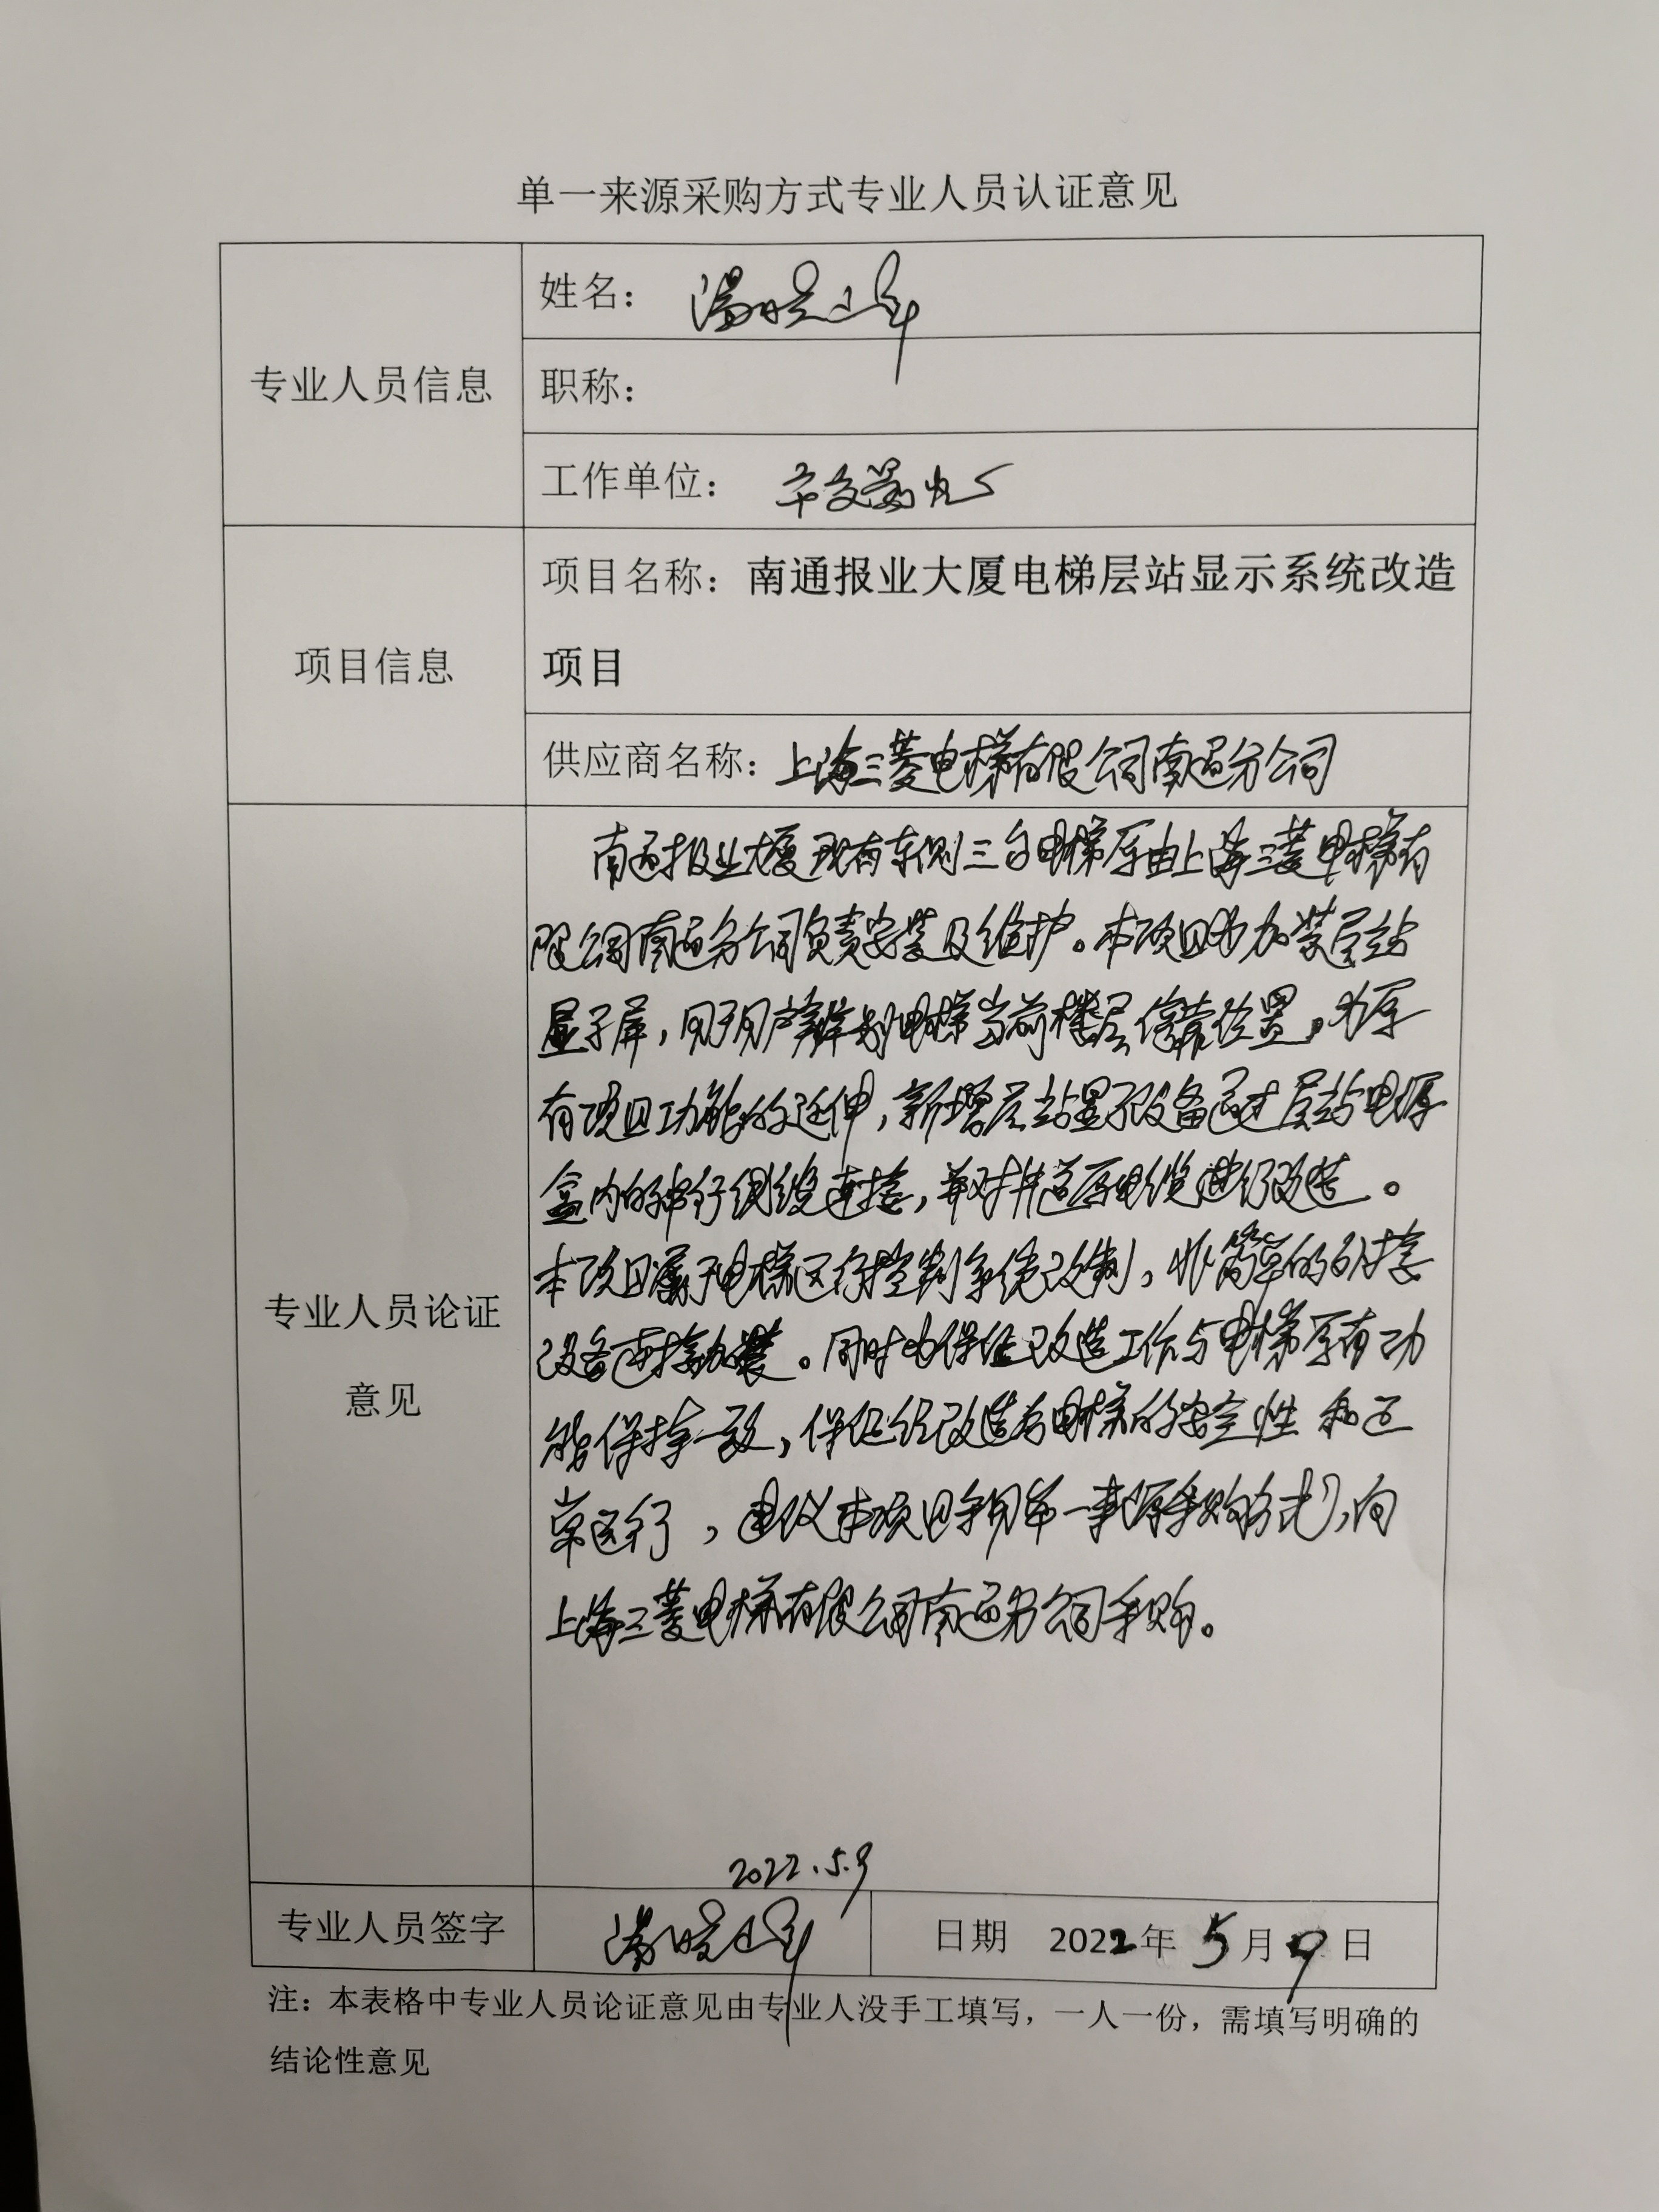 单一来源采购方式专业人员认证意见
专业人员信息
姓名：汤晓峰
职称：
工作单位：
项目信息
项目名称：南通报业大厦电梯层站显示系统改造
项目
供应商名称：上海三菱电梯有限公司南通分公司
专业人员论证
意见
南通报业大厦现有东侧三台电梯原由上海三菱电梯有
限公司南通分公司负责安装及维护。本项目为加装层站
显示屏，用于用户辨别电梯当前楼层停靠位置，为原
有项目功能的延伸，新增层站显示设备通过层站电源
盒内的串行侧缆连接，并对井道原电缆进行改造。
本项目属于电梯运行控制系统改制，非简单的外接
设备直接加装。同时为保证改造工作与电梯原有功
能保持一致，保证经改造为电梯的安全性和正
常运行，建议本项目采用单一来源采购方式，向
上海三菱电梯有限公司南通分公司采购。
2022.5.9
专业人员签字
汤晓峰
日期 2022年5月9日
注：本表格中专业人员论证意见由专业人没手工填写，一人一份，需填写明确的
结论性意见